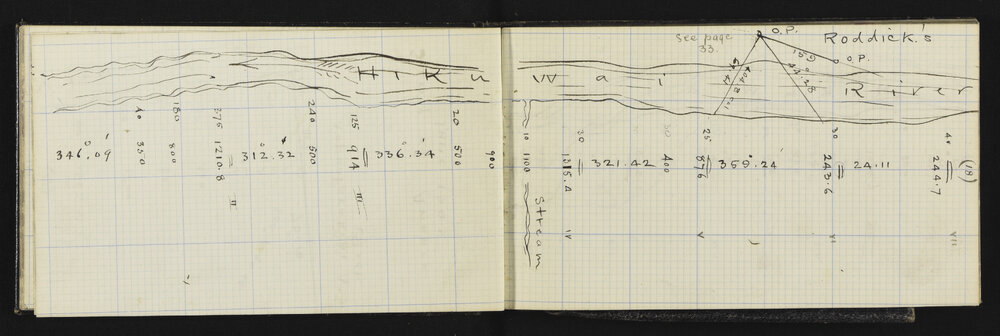 see page
33.
O.P.
Roddick's
O.P.
Hiku
Wai
River
40
180
275
240
125
20
10
30
50
25
30
40
346.09
350
800
1210.8
312.32
500
914
336.34
500
900
1100
1315.4
321.42
400
876
359.24
243.6
24.11
244.7
(18)
Stream
II
III
IV
V
VI
VII